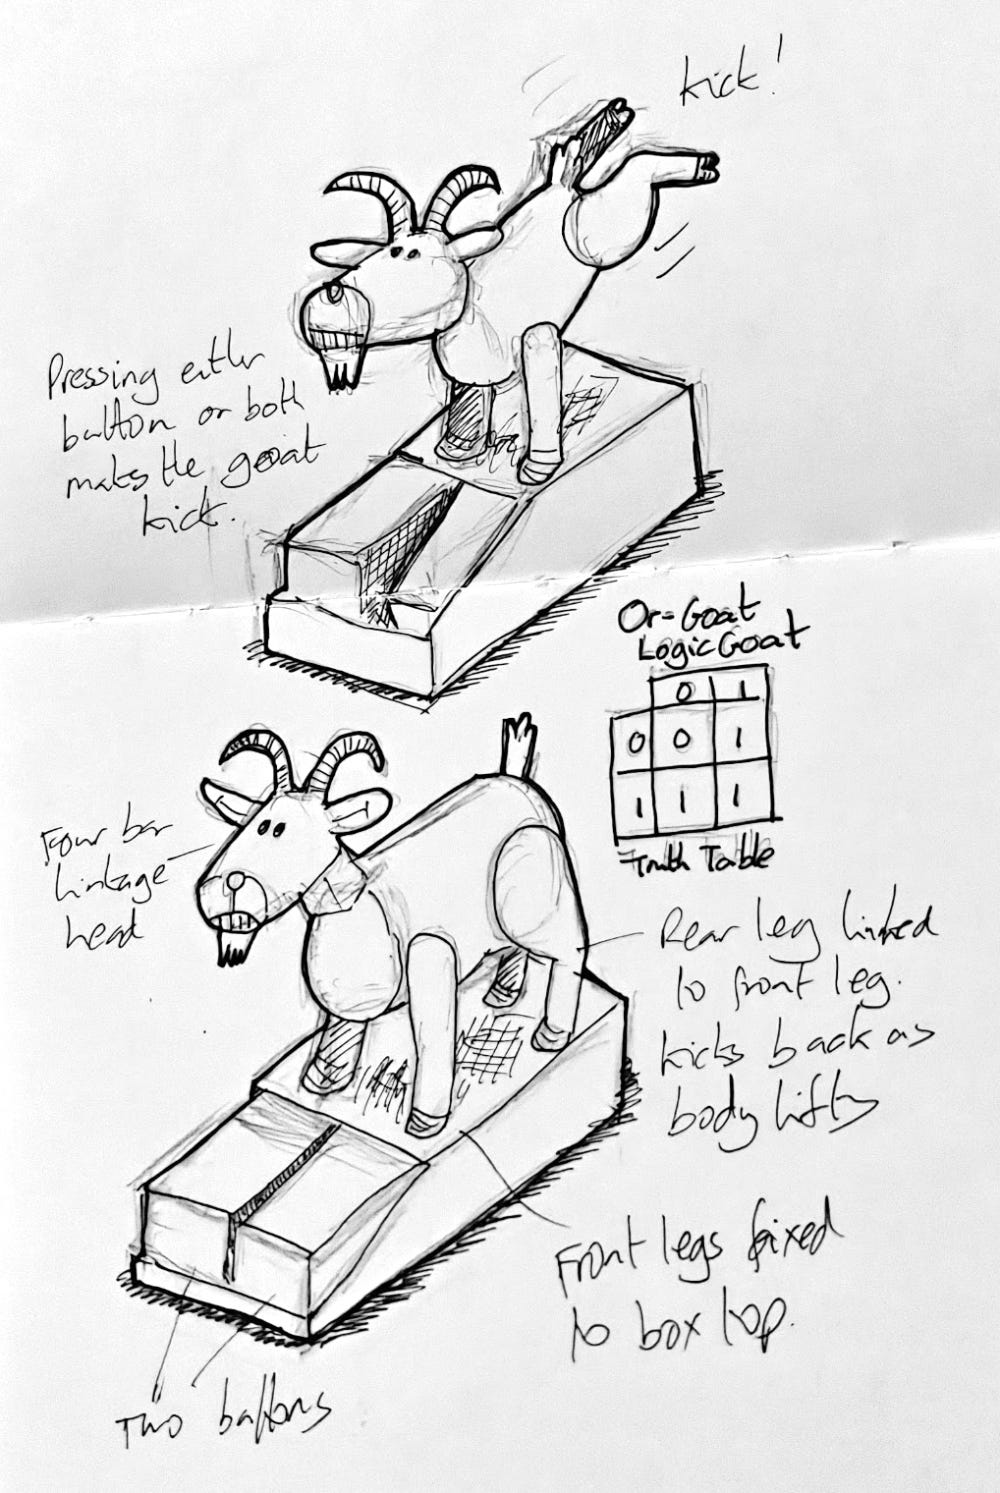 kick!
Pressing either
button or both
makes the goat
kick.
Or-Goat
Logic Goat
0 1
0 0 1
1 1 1
Truth Table
Four bar
linkage
head
Rear leg linked
to front leg.
kicks back as
body lifts
Front legs fixed
to box top.
Two buttons